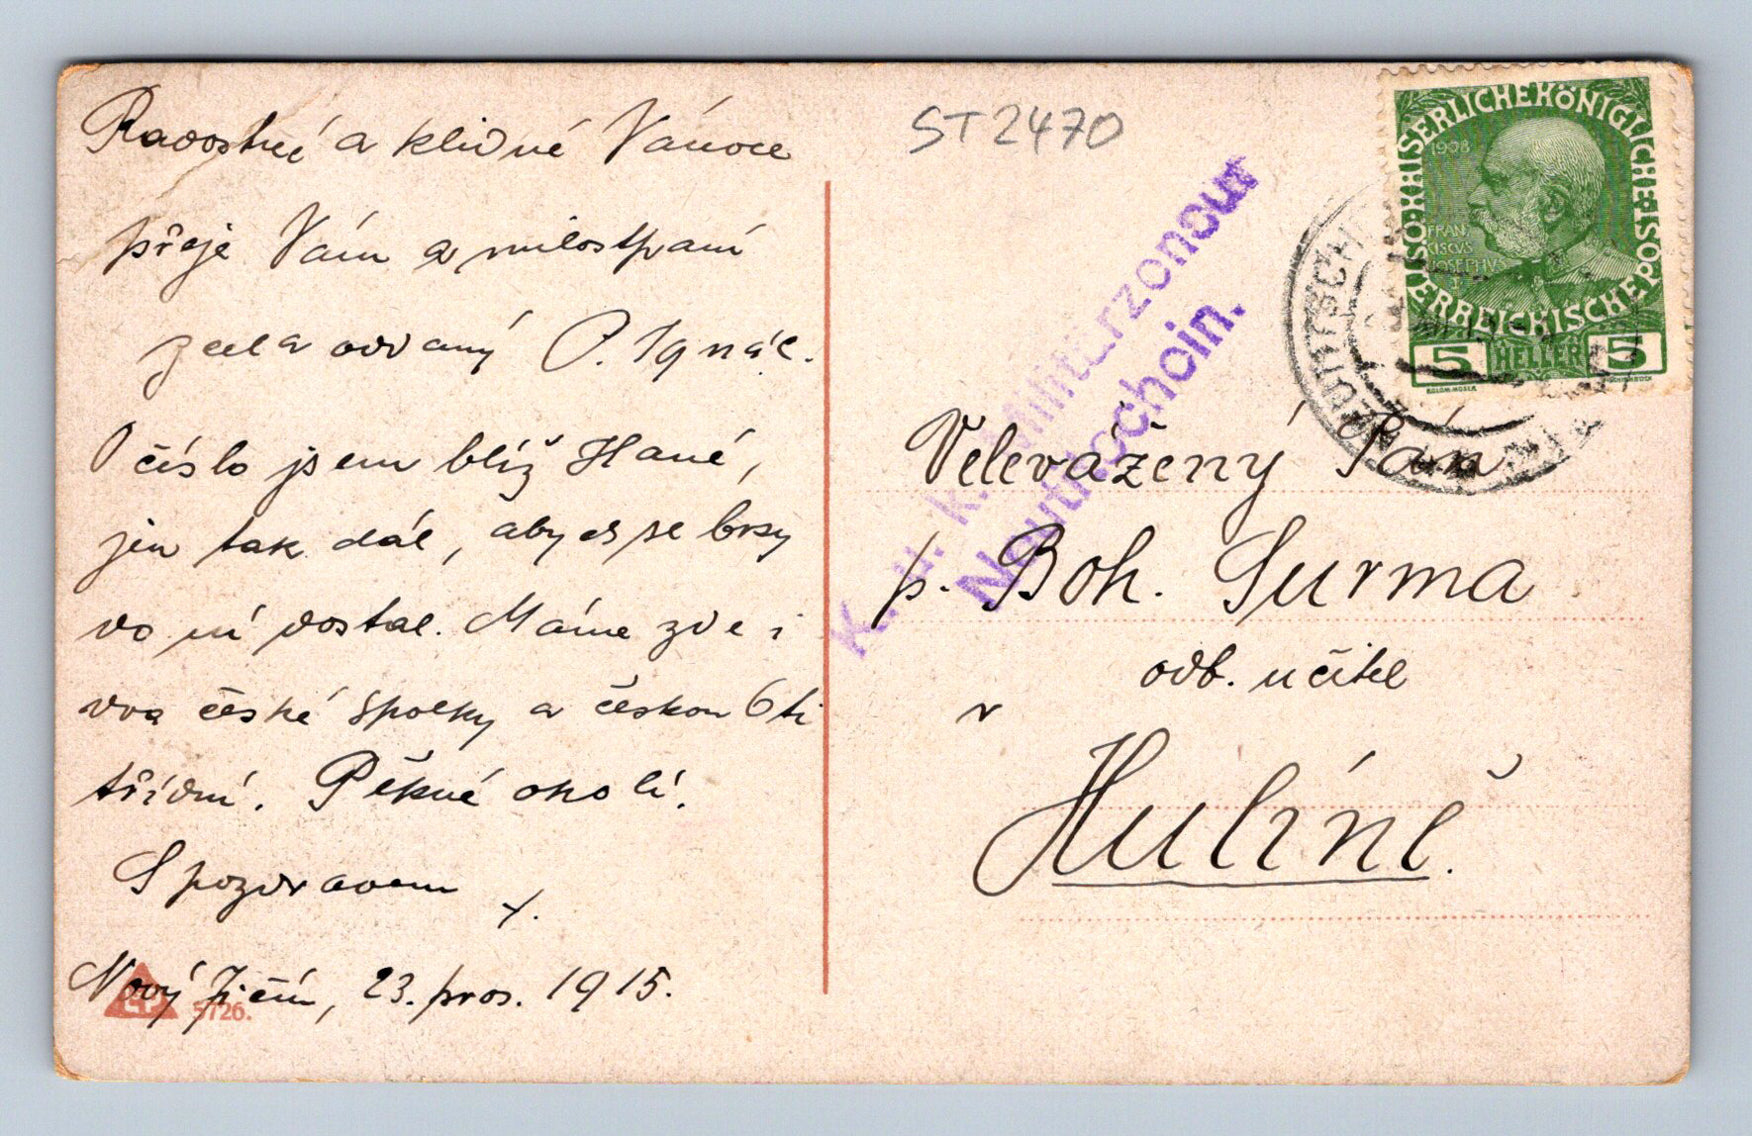 Radostné a klidné Vánoce
přeje Vám a milostpaní
zcela oddaný P. Ignác.
O číslo jsem blíž Hané,
jen tak dál, aby se brzy
do ní dostal. Máme zde i
dva české spolky a českou 6ti
třídní. Pěkné okolí.
S pozdravem
Nový Jičín, 23. pros. 1915.
5726.
ST2470
K. u. K. Militärzensur
Neutitschein.
KAISERLICHEKÖNIGLICHE
ÖSTERREICHISCHEPOST
1908
FRAN
CISCVS
IOSEPHVS
I
5 HELLER 5
NEUTITSCH
Velevážený Pán
p. Boh. Surma
odb. učitel
v
Hulíně.